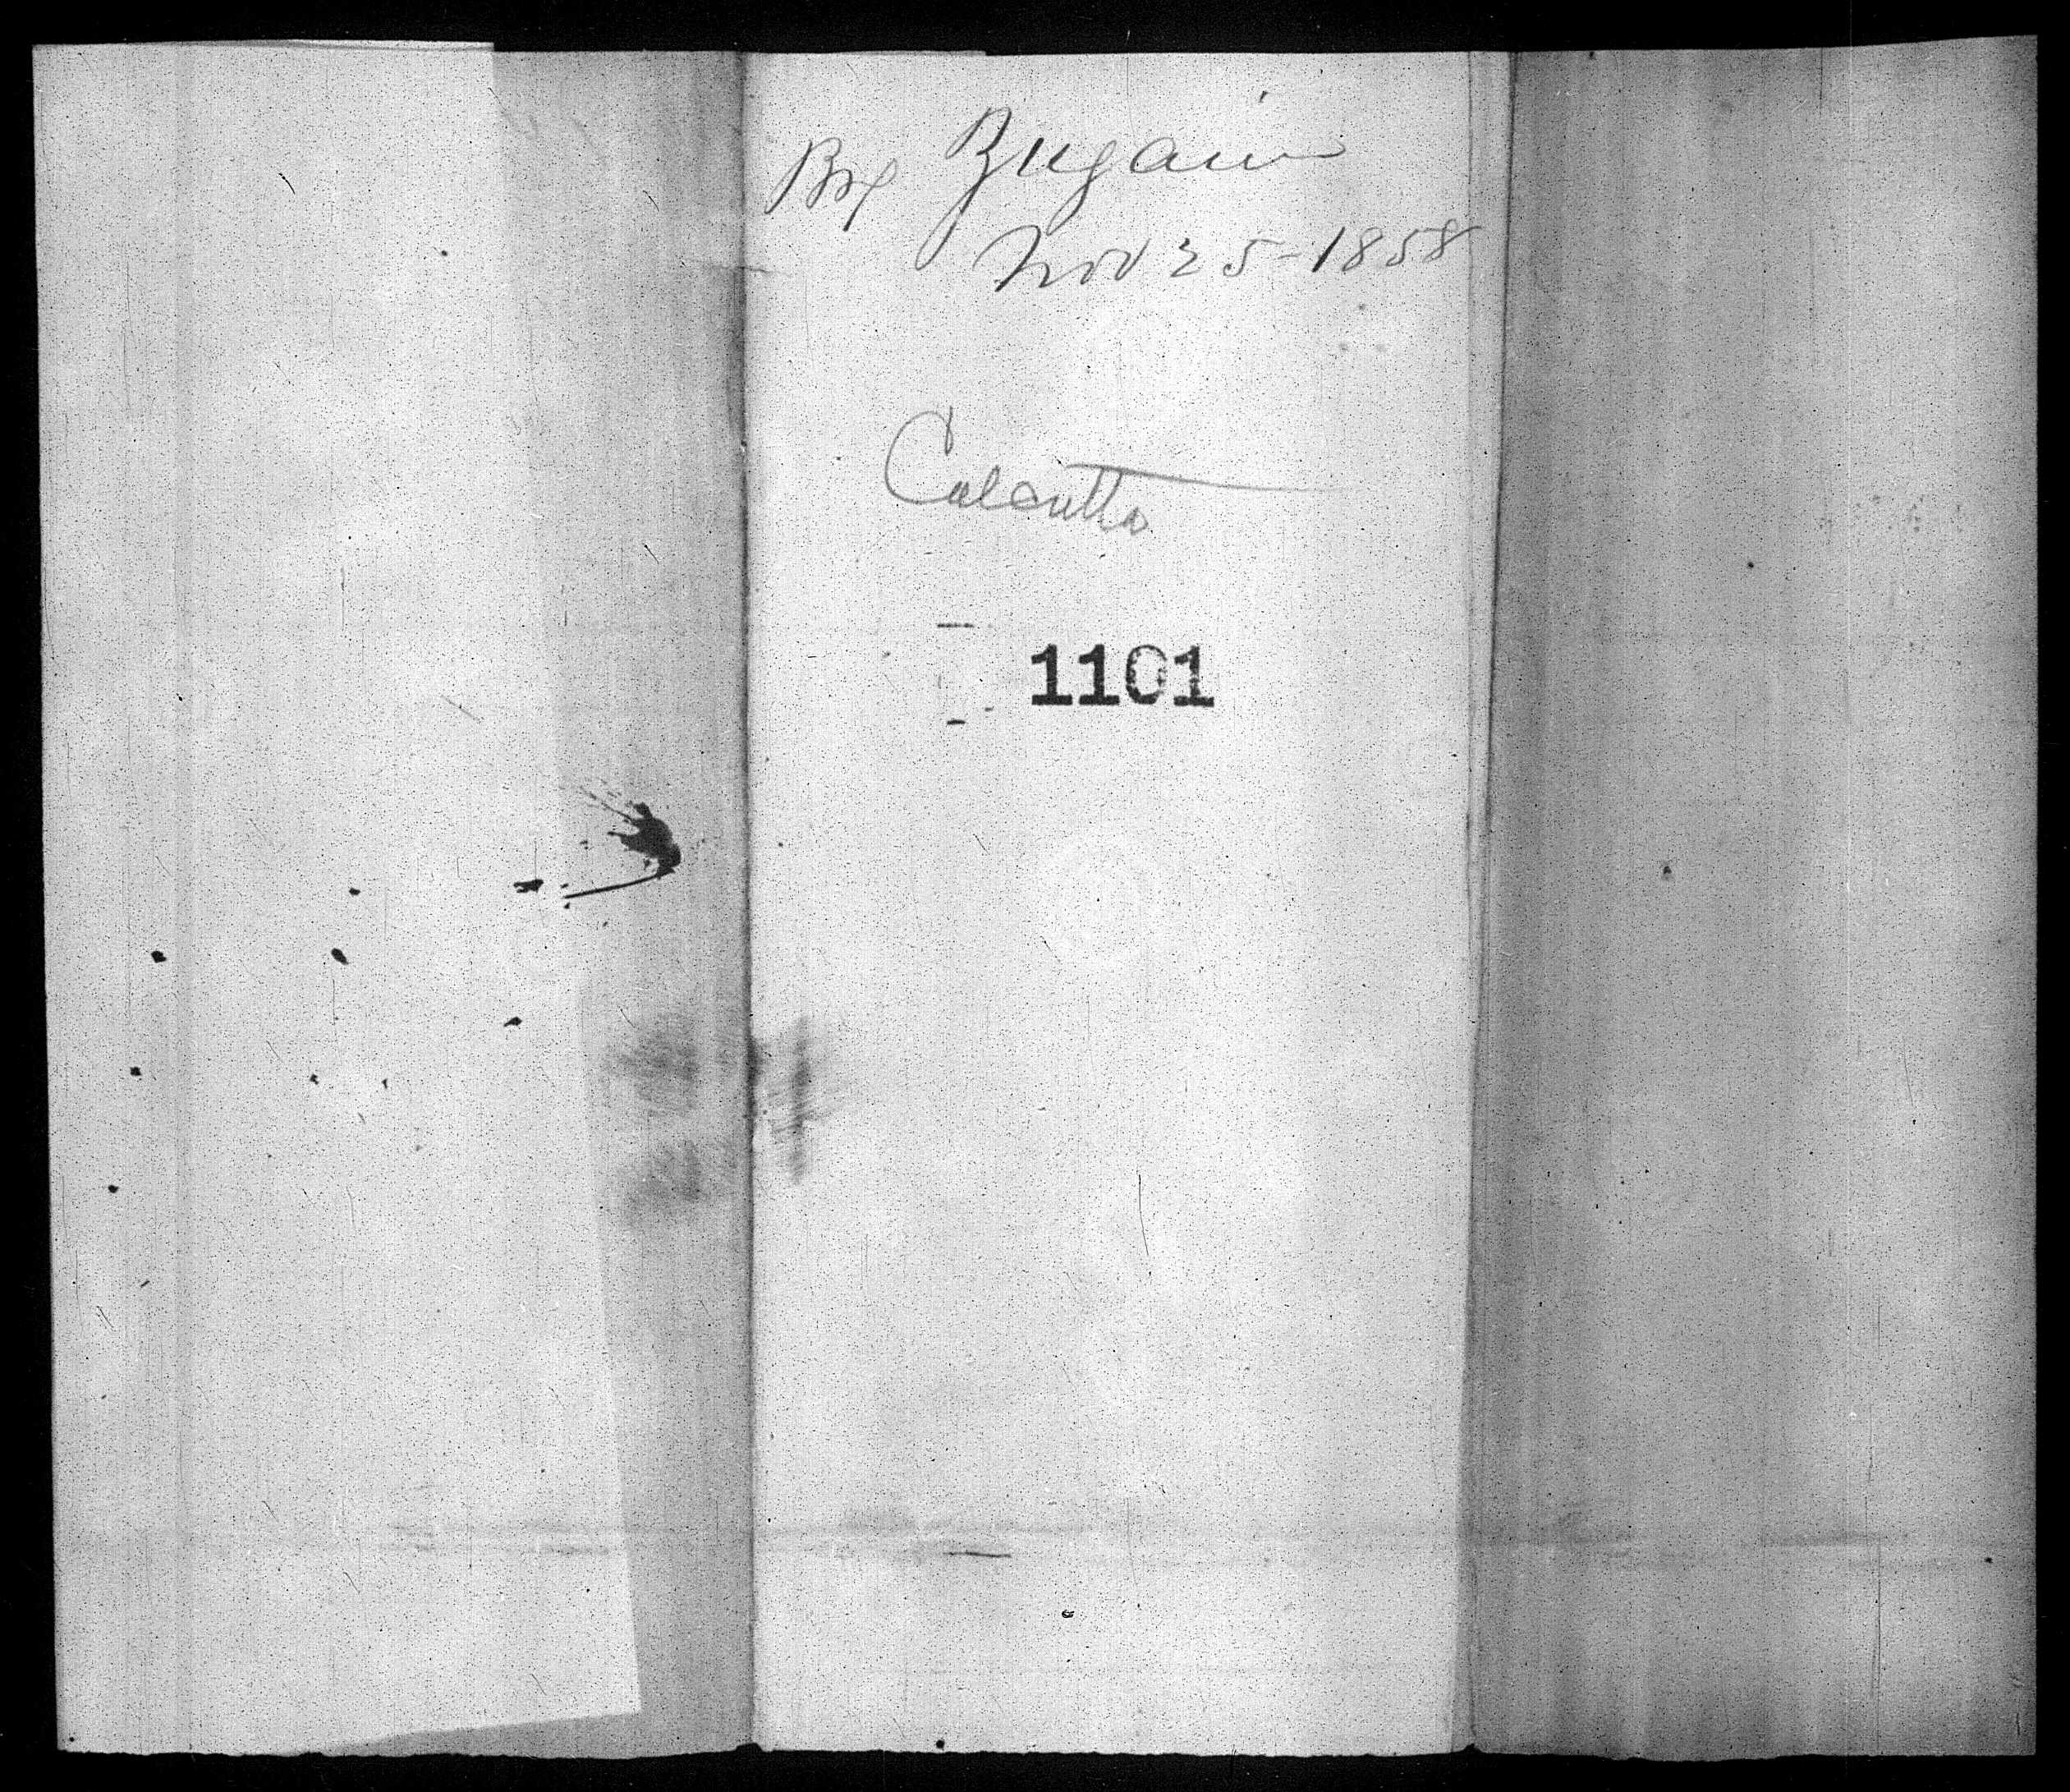 Brg Zugain
Nov 25-1858
Calcutta
1101